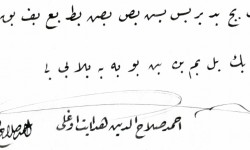 بج بد بر بس بسن بص بصن بط بع بف بق
بك بل بم بن بن بو به به بلا بى يا
احمد صلاح الدين هدايت اوغلى